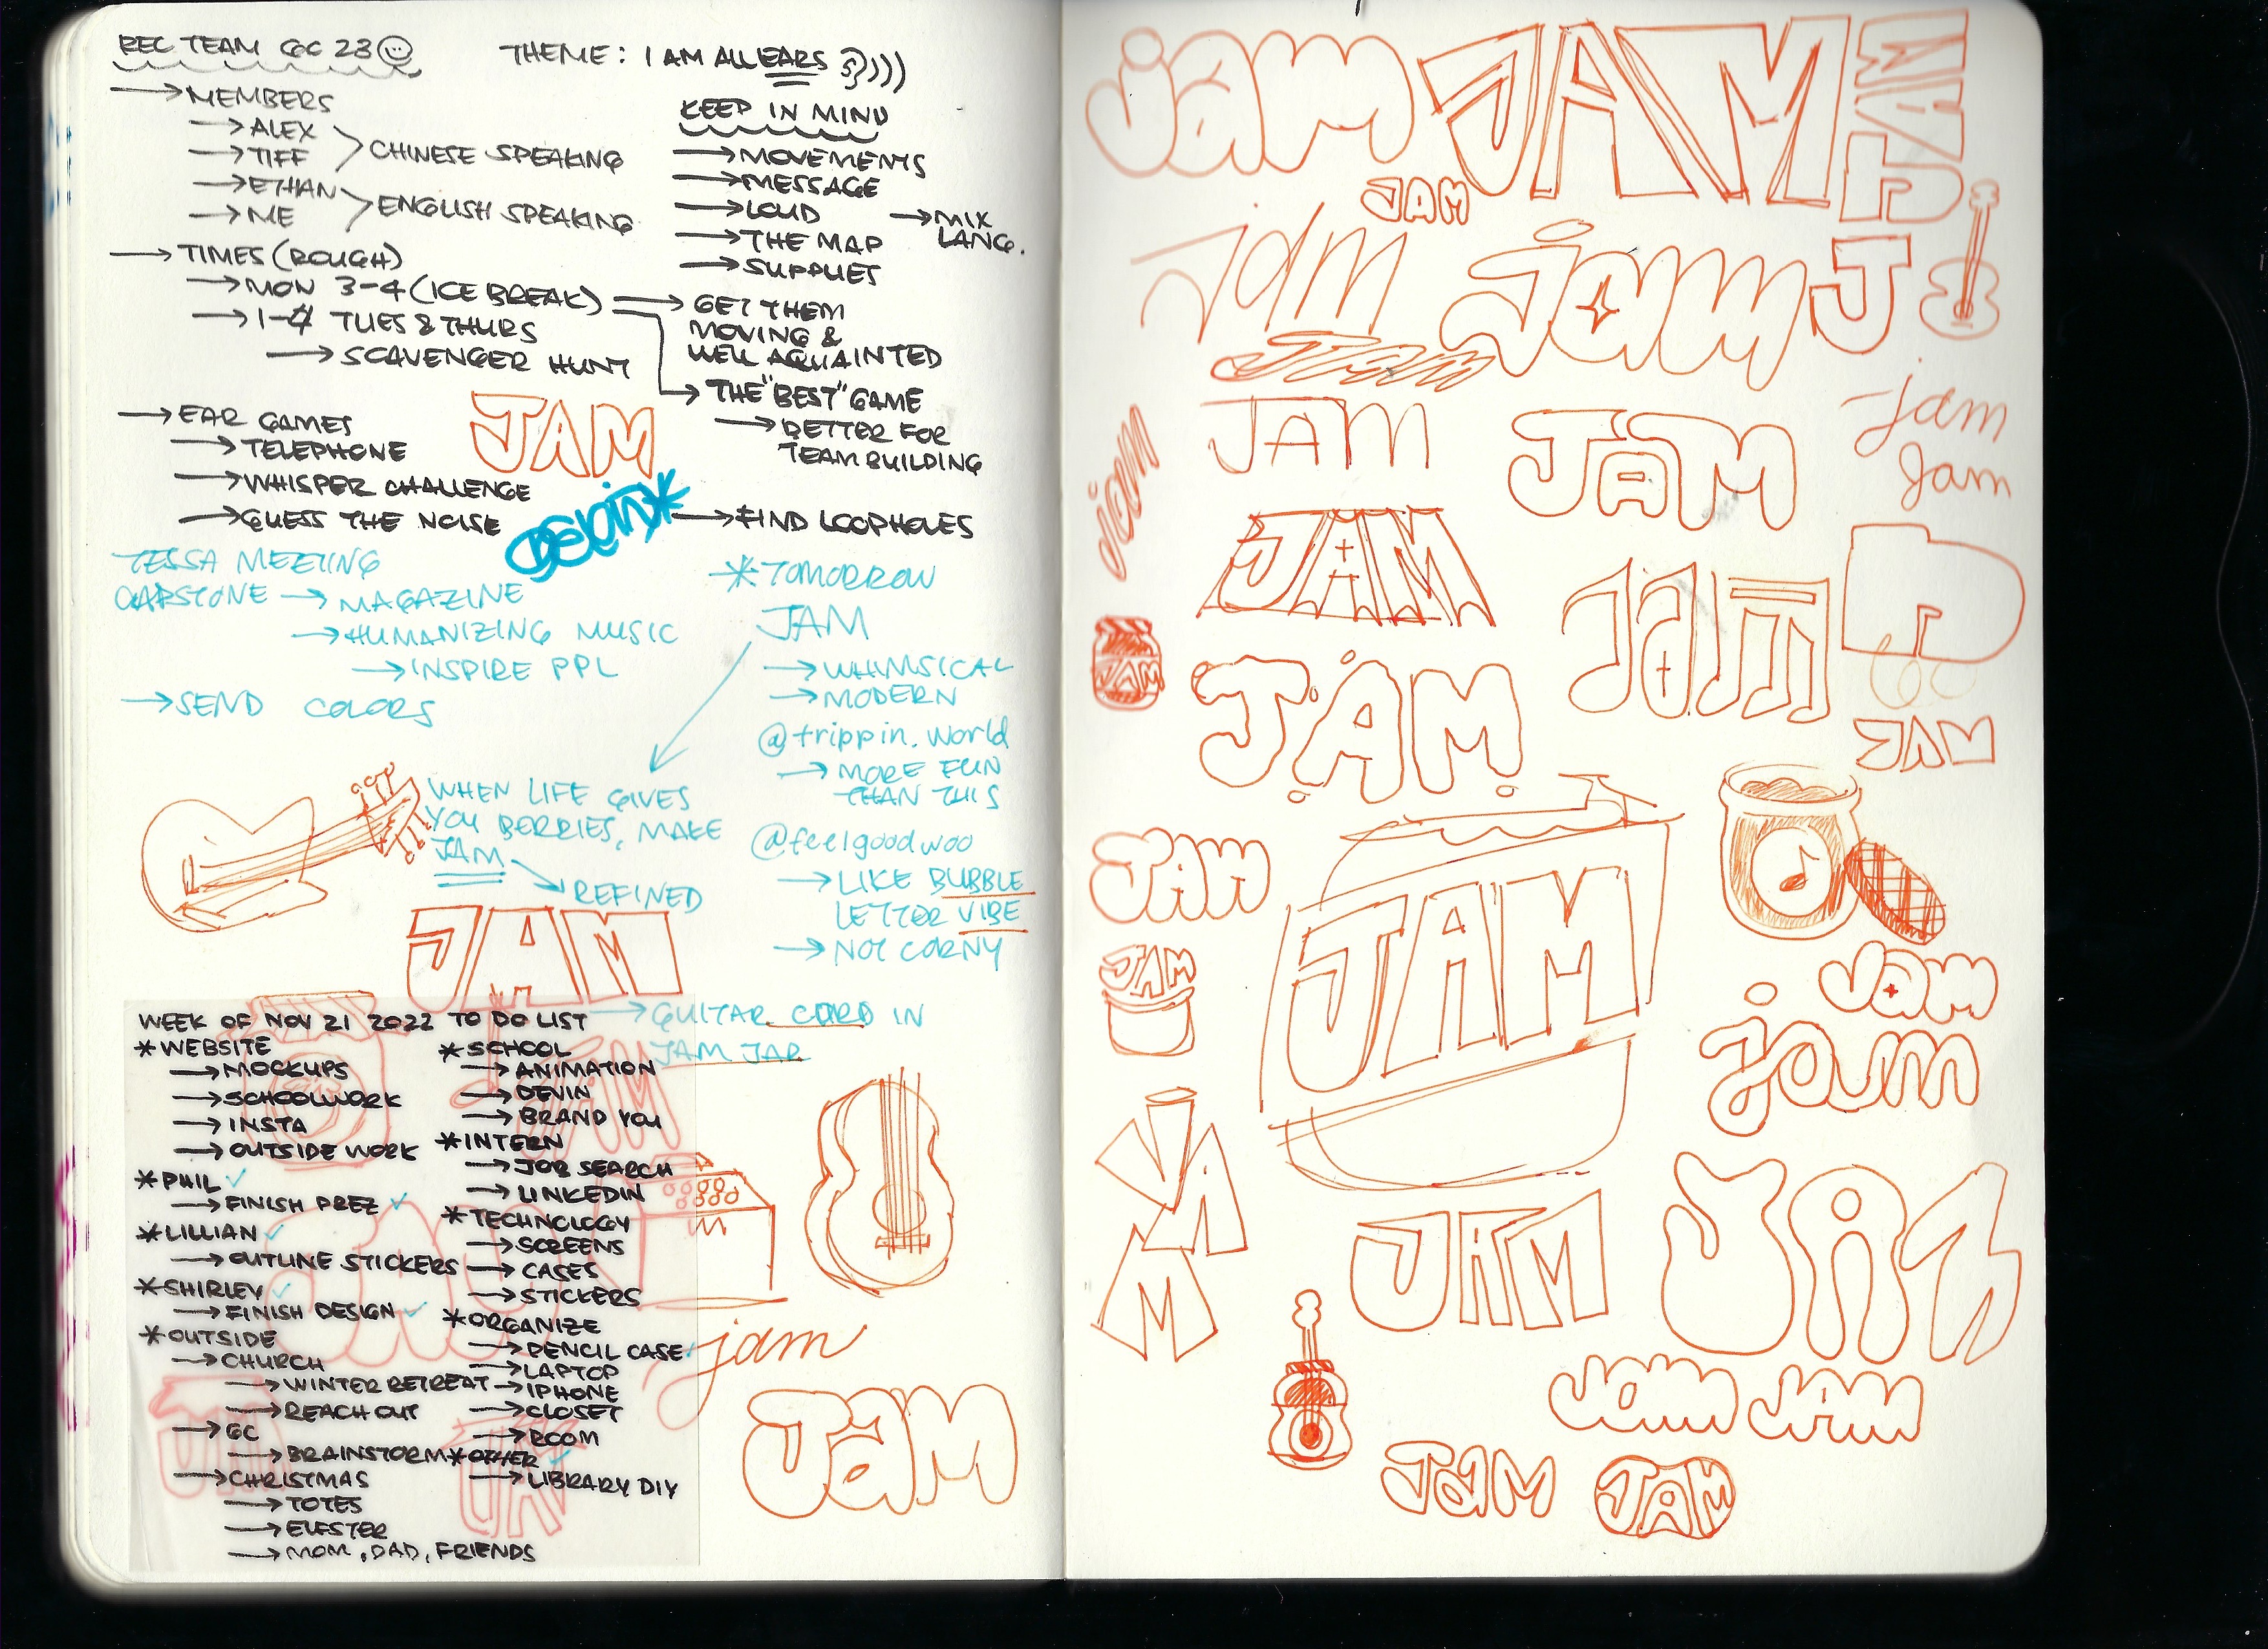 REC TEAM GC 23
THEME: I AM ALL EARS
→ MEMBERS
→ ALEX
→ TIFF
CHINESE SPEAKING
→ ETHAN
→ ME
ENGLISH SPEAKING
→ TIMES (ROUGH)
→ MON 3-4 (ICE BREAK)
→ 1-4 TUES & THURS
→ SCAVENGER HUNT
KEEP IN MIND
→ MOVEMENTS
→ MESSAGE
→ LOUD
→ MIX
LANG.
→ THE MAP
→ SUPPLIES
→ GET THEM
MOVING &
WELL AQUAINTED
→ THE "BEST" GAME
→ BETTER FOR
TEAM BUILDING
→ EAR GAMES
→ TELEPHONE
→ WHISPER CHALLENGE
→ GUESS THE NOISE
→ FIND LOOPHOLES
JAM
TESSA MEETING
CAPSTONE → MAGAZINE
→ HUMANIZING MUSIC
→ INSPIRE PPL
→ SEND COLORS
* TOMORROW
JAM
→ WHIMSICAL
→ MODERN
@trippin.world
→ MORE FUN
THAN THIS
@feelgoodwoo
→ LIKE BUBBLE
LETTER VIBE
→ NOT CORNY
WHEN LIFE GIVES
YOU BERRIES, MAKE
JAM
→ REFINED
JAM
→ GUITAR CORD IN
JAM JAR
WEEK OF NOV 21 2022 TO DO LIST
* WEBSITE
→ MOCKUPS
→ SCHOOLWORK
→ INSTA
→ OUTSIDE WORK
* PHIL ✓
→ FINISH PREZ ✓
* LILLIAN ✓
→ OUTLINE STICKERS
* SHIRLEY ✓
→ FINISH DESIGN ✓
* OUTSIDE
→ CHURCH
→ WINTER RETREAT
→ REACH OUT
→ GC
→ BRAINSTORM
→ CHRISTMAS
→ TOTES
→ ELFSTER
→ MOM, DAD, FRIENDS
* SCHOOL
→ ANIMATION
→ DEVIN
→ BRAND YOU
* INTERN
→ JOB SEARCH
→ LINKEDIN
* TECHNOLOGY
→ SCREENS
→ CASES
→ STICKERS
* ORGANIZE
→ PENCIL CASE
→ LAPTOP
→ IPHONE
→ CLOSET
→ ROOM
* OTHER ✓
→ LIBRARY DIY
jam
JaM
jam
JAM
JAM
JAM
Jam
jam
J
Jam
JAM
JaM
jam
Jam
jam
JAM
Jam
JAM
JAM
JAM
JAM
JAM
JAM
JAM
Jam
jam
JAM
JAM
JAM
Jam
JAM
JaM
JAM